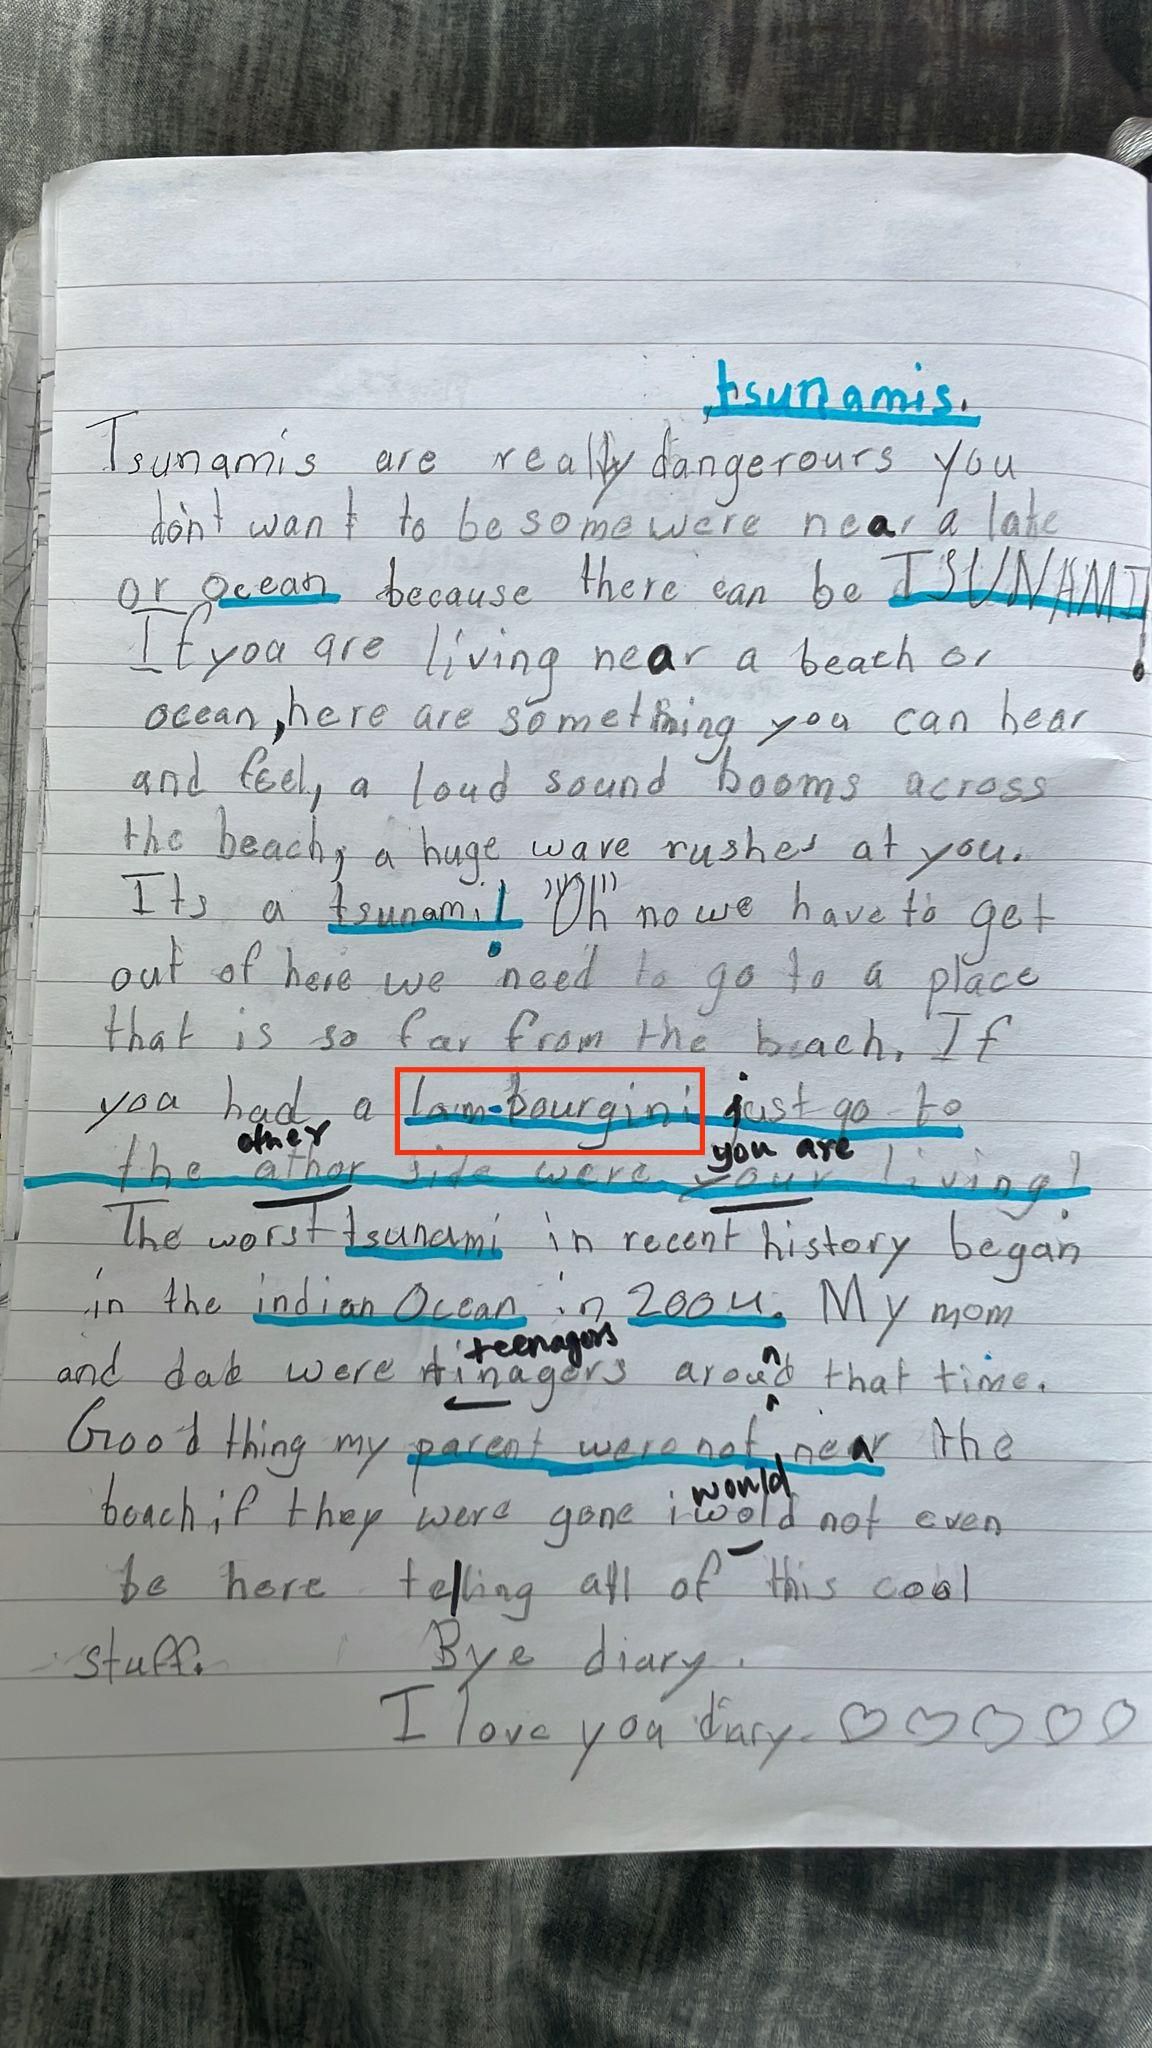 tsunamis.
Tsunamis are really dangerours you
don't want to be some were near a lake
or ocean because there can be TSUNAMI!
If you are living near a beach or
ocean, here are something you can hear
and feel, a loud sound booms across
the beach, a huge wave rushes at you.
Its a tsunami! "Oh" no we have to get
out of here we need to go to a place
that is so far from the beach. If
you had a lam-bourgini just go to
other you are
the athor side were your living!
The worst tsunami in recent history began
in the indian Ocean in 2004. My mom
teenagors
and dad were tinagors around that time.
Good thing my parent were not near the
would
beach, if they were gone i wold not even
be here telling all of this cool
stuff. Bye diary.
I love you diary. ♡ ♡ ♡ ♡ ♡